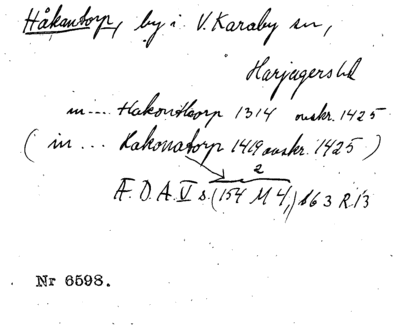 Håkantorp, by i V. Karaby sn,
Harjagers hd
in .... Hakonthorp 1314 avskr. 1425
( in ... Hakonatorp 1419 avskr. 1425 )
2
Æ. D. A. V s. (154 M 4,) 163 R 13
Nr 6598.